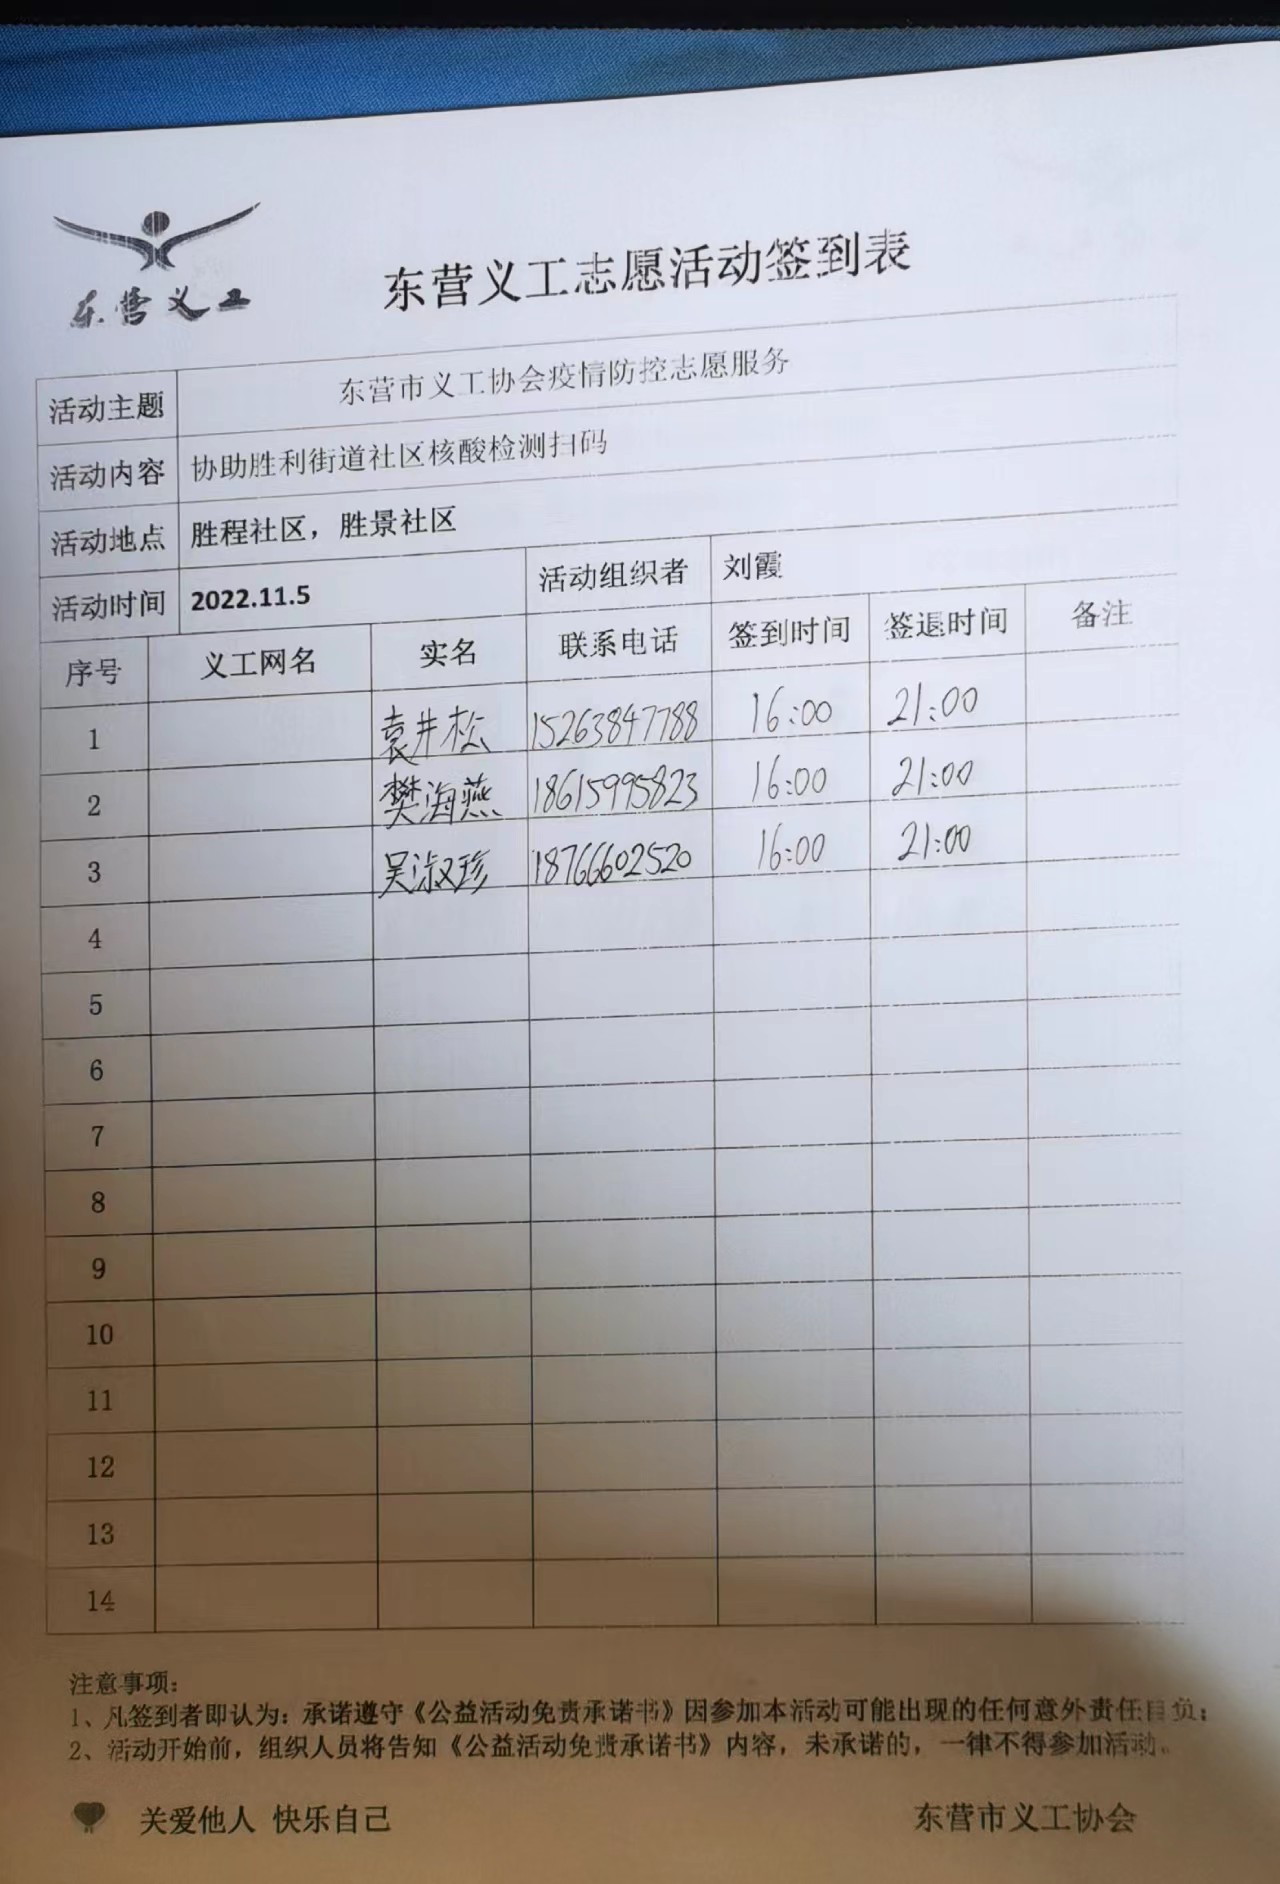 东营义工
东营义工志愿活动签到表
活动主题 东营市义工协会疫情防控志愿服务
活动内容 协助胜利街道社区核酸检测扫码
活动地点 胜程社区，胜景社区
活动时间 2022.11.5 活动组织者 刘霞
序号 义工网名 实名 联系电话 签到时间 签退时间 备注
1 袁井松 15263847788 16:00 21:00
2 樊海燕 18615995823 16:00 21:00
3 吴淑珍 18766602520 16:00 21:00
4
5
6
7
8
9
10
11
12
13
14
注意事项：
1、凡签到者即认为：承诺遵守《公益活动免责承诺书》因参加本活动可能出现的任何意外责任自负；
2、活动开始前，组织人员将告知《公益活动免责承诺书》内容，未承诺的，一律不得参加活动。
关爱他人 快乐自己 东营市义工协会